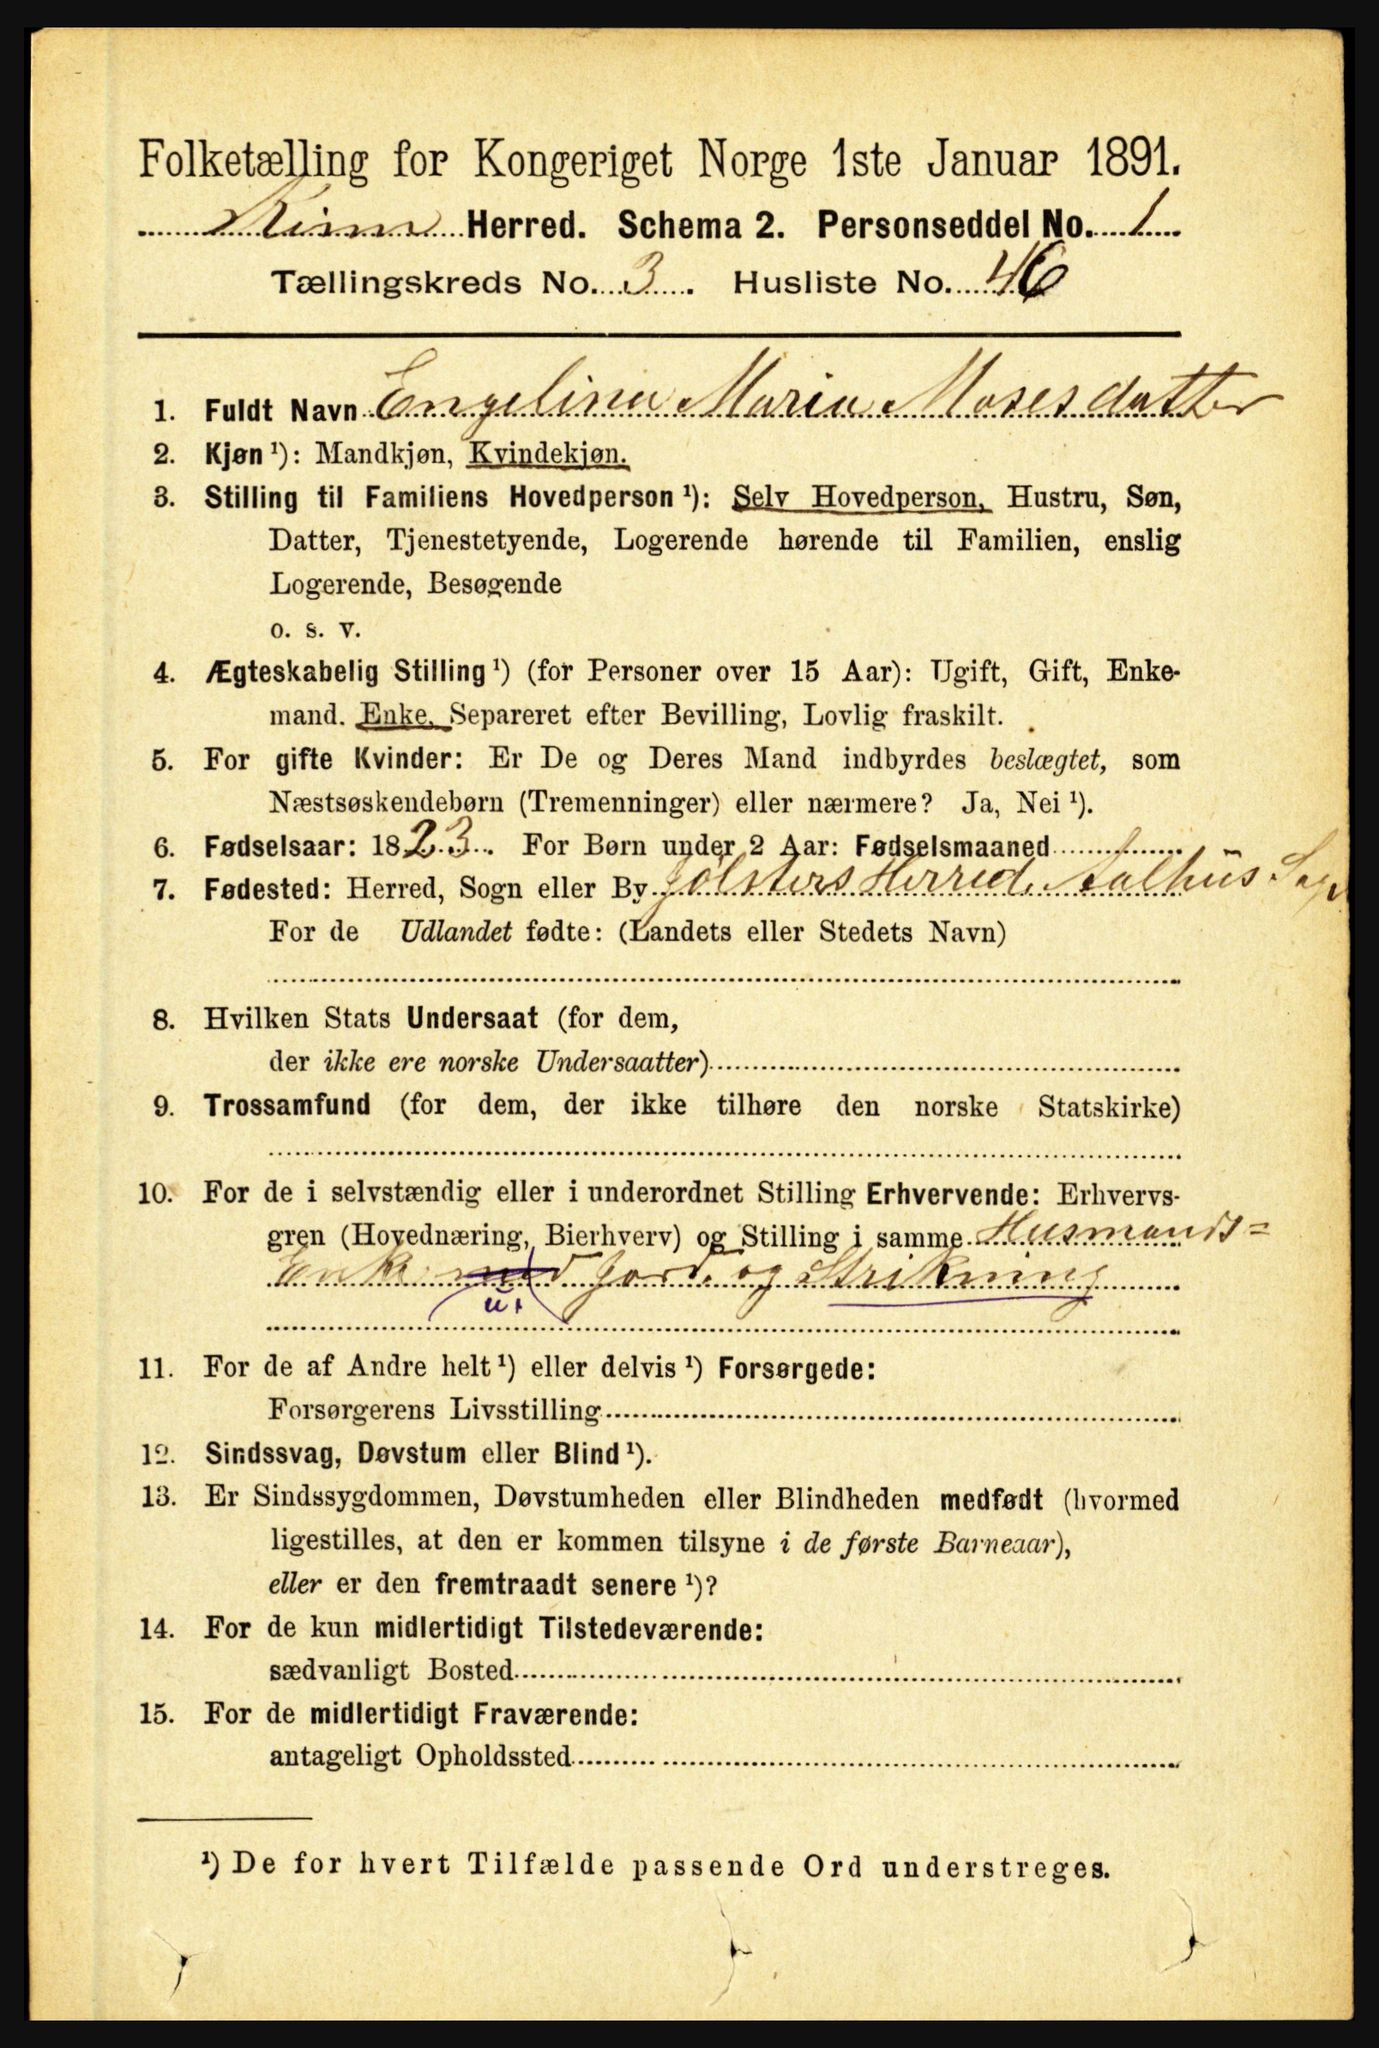 Folketælling for Kongeriget Norge 1ste Januar 1891.
Kinn Herred. Schema 2. Personseddel No. 1
Tællingskreds No. 3. Husliste No. 46
1. Fuldt Navn Engelina Maria Mosesdatter
2. Kjøn ¹): Mandkjøn, Kvindekjøn.
3. Stilling til Familiens Hovedperson ¹): Selv Hovedperson, Hustru, Søn,
Datter, Tjenestetyende, Logerende hørende til Familien, enslig
Logerende, Besøgende
o. s. v.
4. Ægteskabelig Stilling ¹) (for Personer over 15 Aar): Ugift, Gift, Enke-
mand. Enke. Separeret efter Bevilling, Lovlig fraskilt.
5. For gifte Kvinder: Er De og Deres Mand indbyrdes beslægtet, som
Næstsøskendebørn (Tremenninger) eller nærmere? Ja, Nei ¹).
6. Fødselsaar: 1823. For Børn under 2 Aar: Fødselsmaaned
7. Fødested: Herred, Sogn eller By Jølsters Herred, Aalhus Sogn
For de Udlandet fødte: (Landets eller Stedets Navn)
8. Hvilken Stats Undersaat (for dem,
der ikke ere norske Undersaatter)
9. Trossamfund (for dem, der ikke tilhøre den norske Statskirke)
10. For de i selvstændig eller i underordnet Stilling Erhvervende: Erhvervs-
gren (Hovednæring, Bierhverv) og Stilling i samme Husmands=
Enke med Jord. og Strikning
u.
11. For de af Andre helt ¹) eller delvis ¹) Forsørgede:
Forsørgerens Livsstilling
12. Sindssvag, Døvstum eller Blind ¹).
13. Er Sindssygdommen, Døvstumheden eller Blindheden medfødt (hvormed
ligestilles, at den er kommen tilsyne i de første Barneaar),
eller er den fremtraadt senere ¹)?
14. For de kun midlertidigt Tilstedeværende:
sædvanligt Bosted
15. For de midlertidigt Fraværende:
antageligt Opholdssted
¹) De for hvert Tilfælde passende Ord understreges.